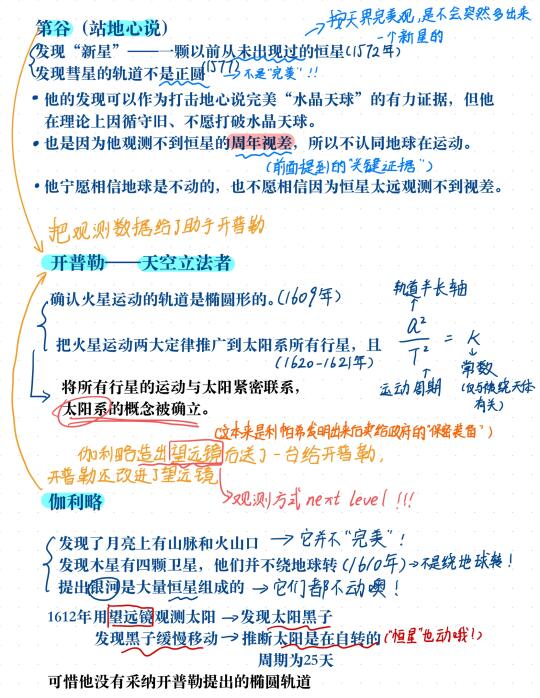 第谷（站地心说）
按天界完美观，是不会突然多出来
一个新星的
发现“新星”——一颗以前从未出现过的恒星(1572年)
发现彗星的轨道不是正圆(1577) →不是“完美”!!
• 他的发现可以作为打击地心说完美“水晶天球”的有力证据，但他
在理论上因循守旧、不愿打破水晶天球。
• 也是因为他观测不到恒星的周年视差，所以不认同地球在运动。
(前面提到的“关键证据”)
• 他宁愿相信地球是不动的，也不愿相信因为恒星太远观测不到视差。
把观测数据给了助手开普勒
开普勒——天空立法者
确认火星运动的轨道是椭圆形的。(1609年)
轨道半长轴
a²/T² = K
运动周期
常数
(仅与
天体
有关)
把火星运动两大定律推广到太阳系所有行星，且
(1620-1621年)
将所有行星的运动与太阳紧密联系，
太阳系的概念被确立。
(这本来是利帕希发明出来后卖给政府的“保密装备”)
伽利略造出望远镜后送了一台给开普勒，
开普勒还改进了望远镜
→观测方式next level !!!
伽利略
发现了月亮上有山脉和火山口 →它并不“完美”！
发现木星有四颗卫星，他们并不绕地球转(1610年)→不是绕地球转！
提出银河是大量恒星组成的 →它们都不动噢！
1612年用望远镜观测太阳 →发现太阳黑子
发现黑子缓慢移动 →推断太阳是在自转的(“恒星”也动哦!)
周期为25天
可惜他没有采纳开普勒提出的椭圆轨道